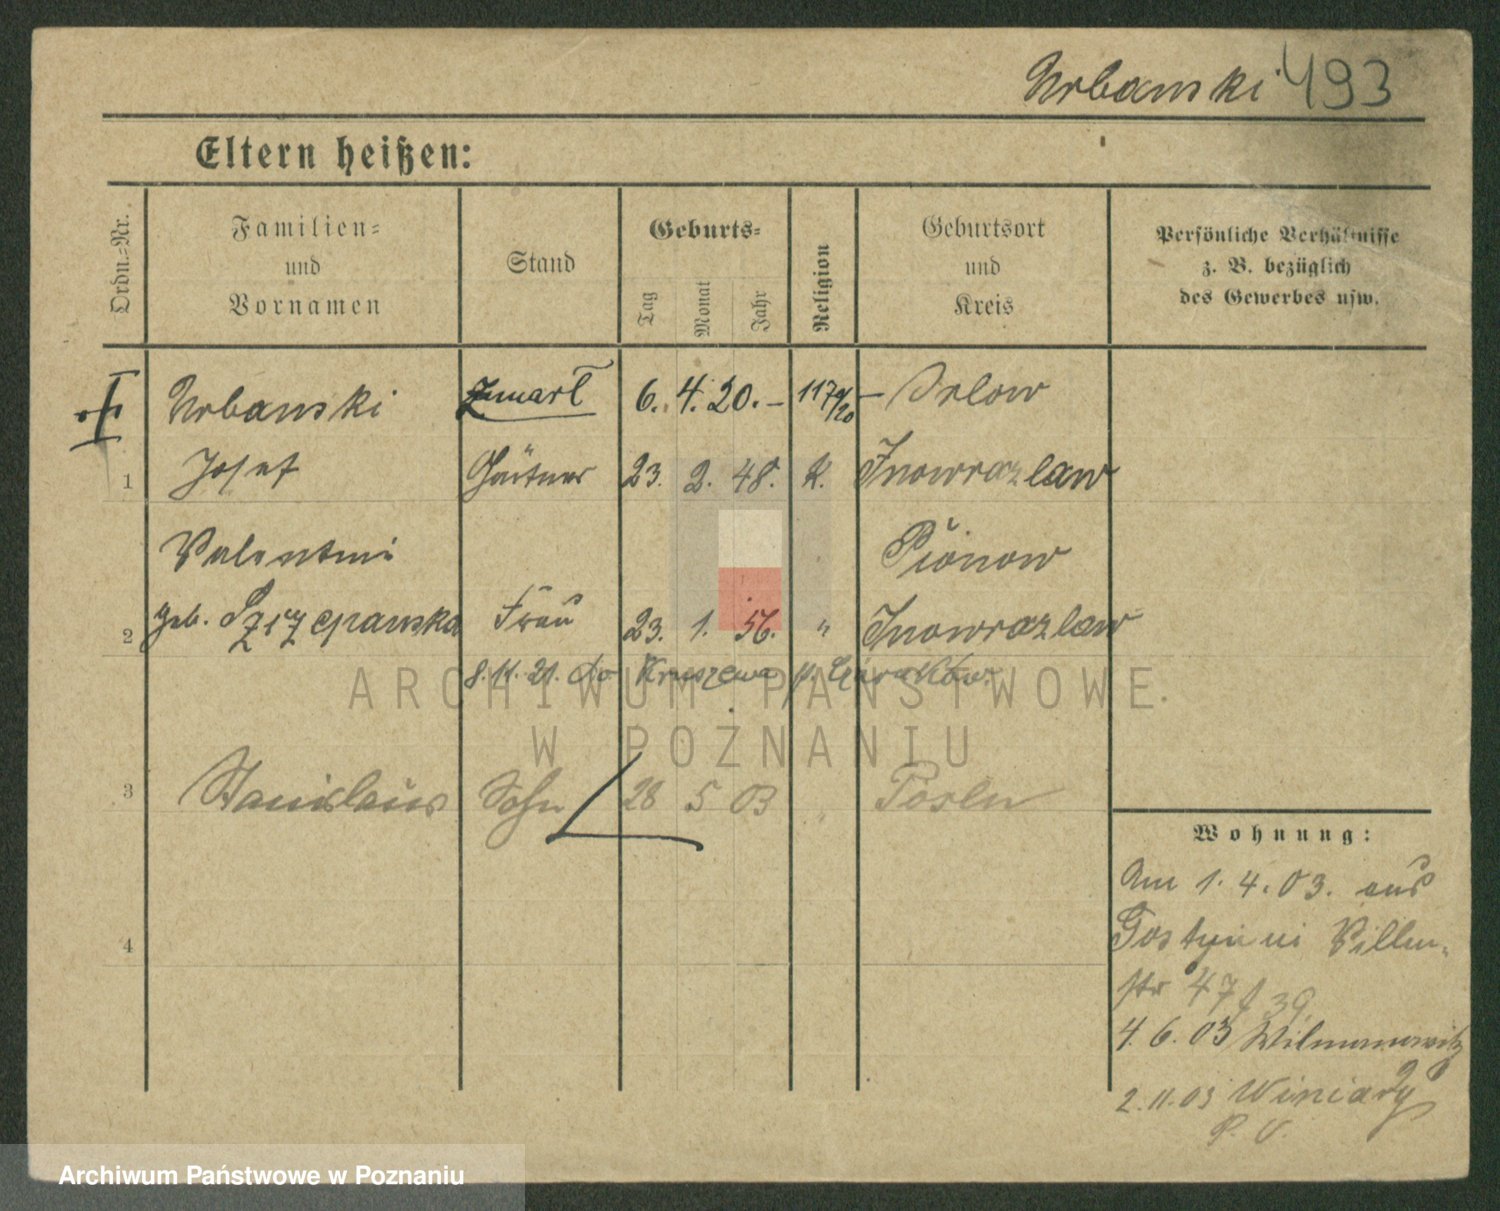 Urbanski 493
Eltern heißen:
Ordn.-Nr.
Familien- und Vornamen
Stand
Geburts-
Tag
Monat
Jahr
Religion
Geburtsort und Kreis
Persönliche Verhältnisse z. B. bezüglich des Gewerbes usw.
Urbanski zmarł 6. 4. 20. – 1179/20 – Orlow
1 Josef Gärtner 23. 2. 48. K. Inowrazlaw
Valentini Pionow
2 geb. Szczepanska Frau 23. 1. 56. " Inowrazlaw
8. 11. 21. do Kruszewa p. Czarnków.
ARCHIWUM PAŃSTWOWE
W POZNANIU
3 Stanislaus Sohn 28 5 03 " Posen
4
Wohnung:
Am 1. 4. 03. aus
Gostyn in Villen-
str 47 39
4. 6. 03 Wilmowitz
2. 11. 03 Winiary
P. V.
Archiwum Państwowe w Poznaniu